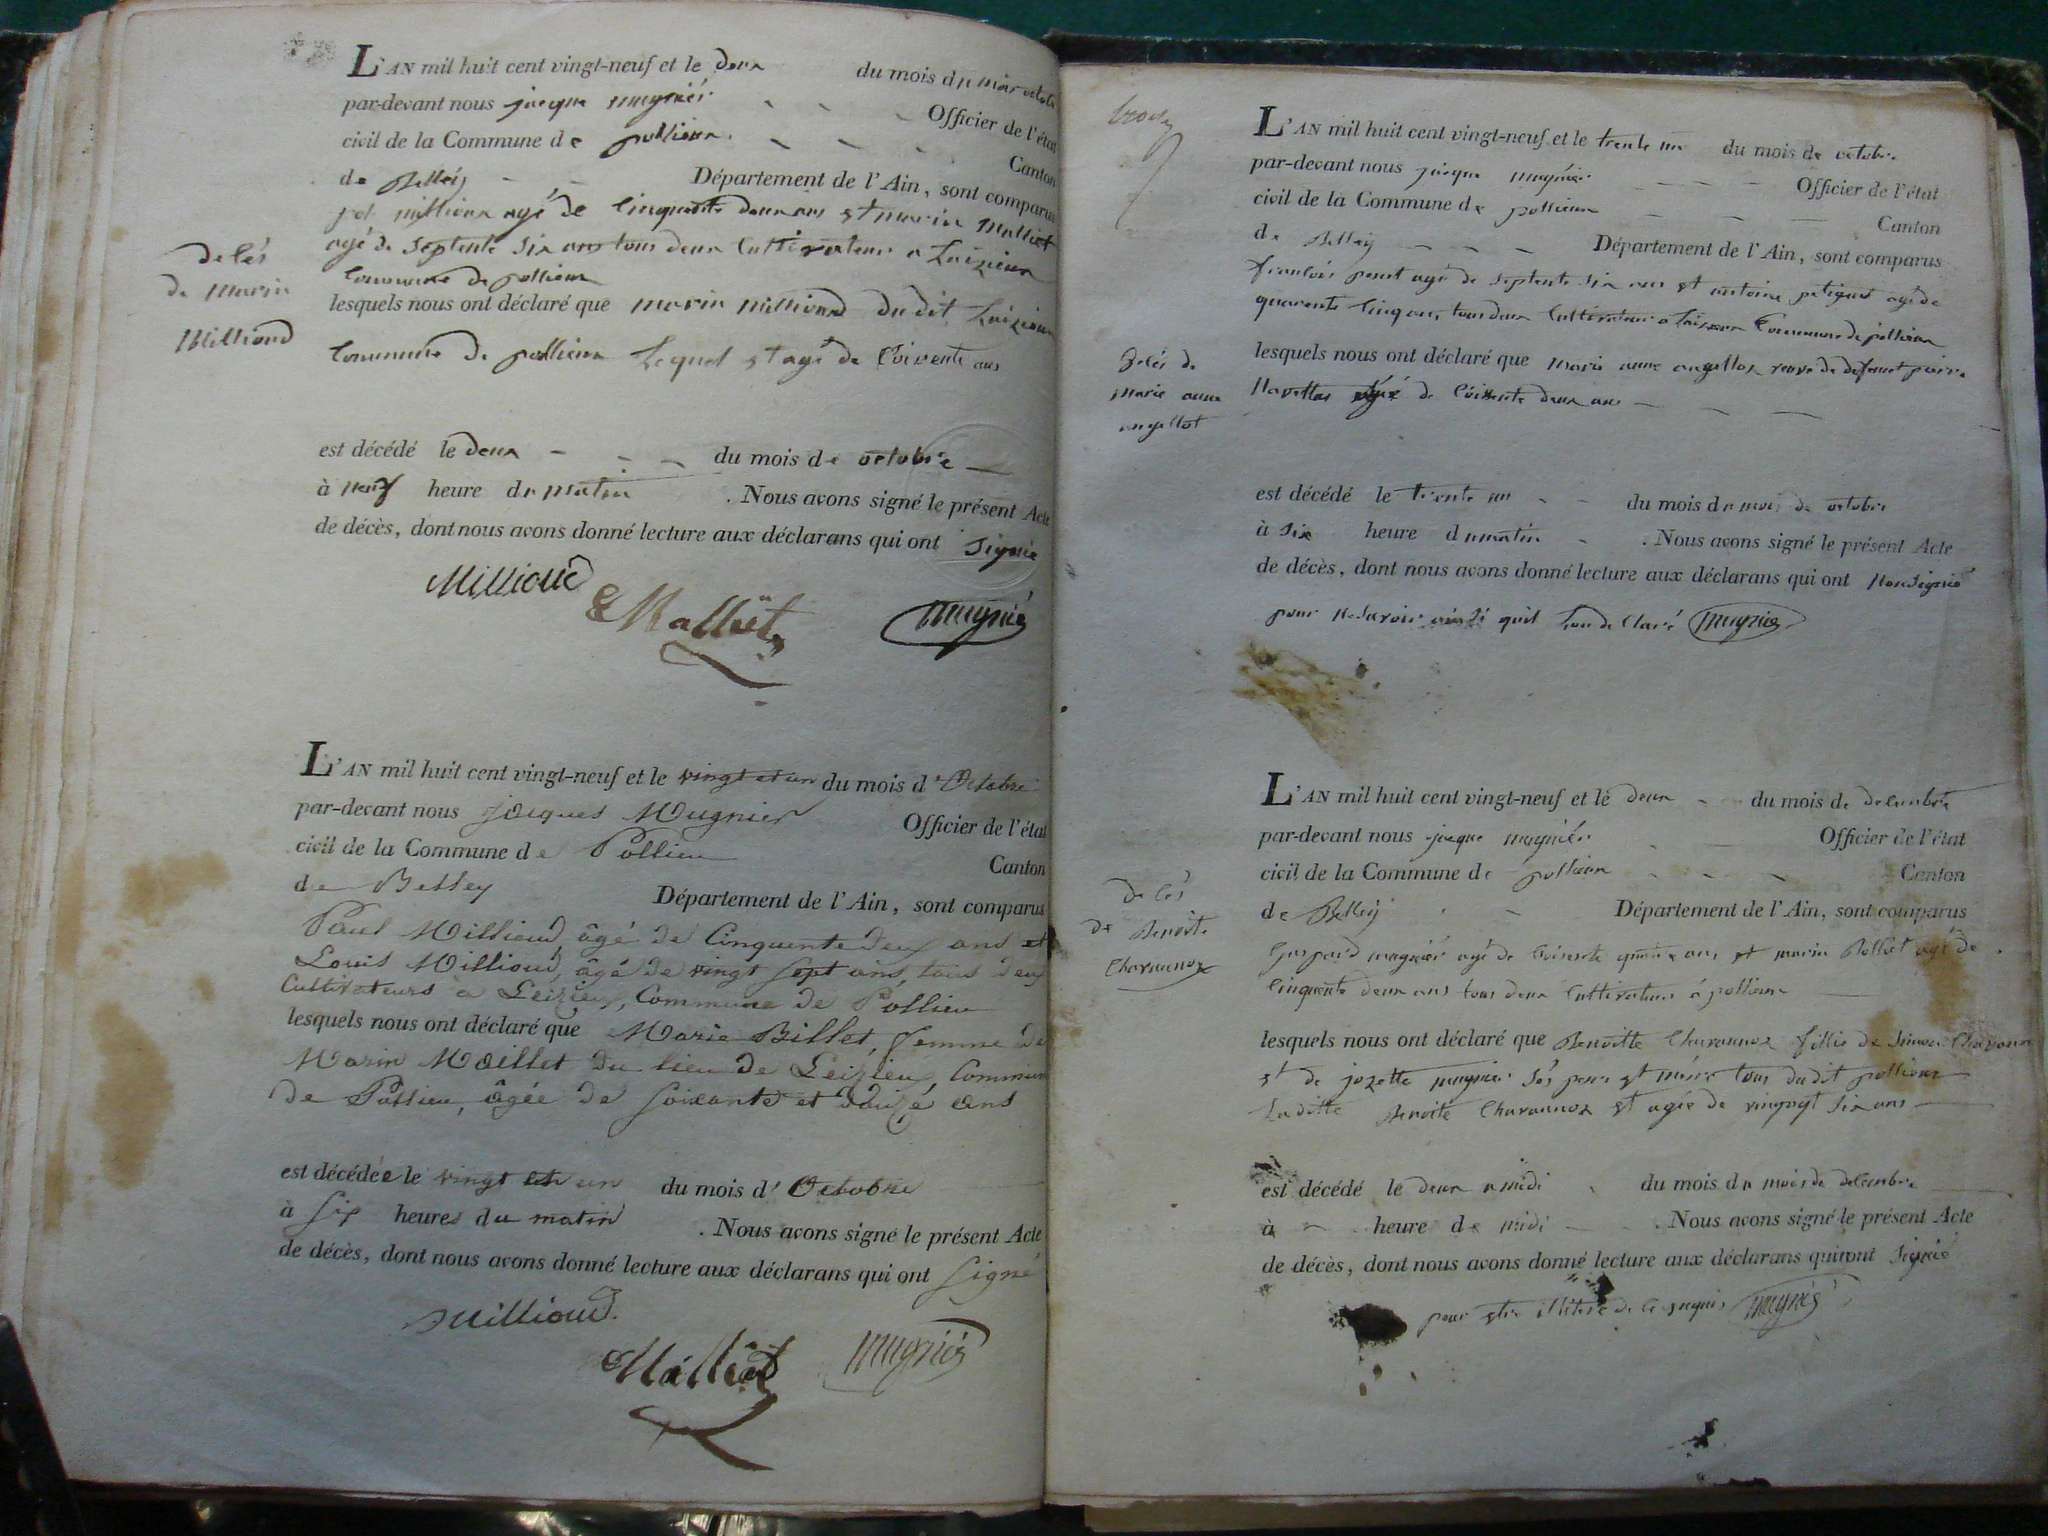 L'AN mil huit cent vingt-neuf et le deux du mois du mois octobre
par-devant nous jacque mugniér Officier de l'état
civil de la Commune de pollieux Canton
de Belley Département de l'Ain, sont comparus
millioux agé de Cinquante deux ans et marin Malliet
agé de septente six ans tous deux Cultivateur a Laizieux
Commune de pollieux
decés
de marin
Milliond
lesquels nous ont déclaré que marin milliond du dit Laizieux
Commune de pollieux Lequel et agé de Coixente ans
est décédé le deux du mois de octobre
à neuf heure du matin . Nous avons signé le présent Acte
de décès, dont nous avons donné lecture aux déclarans qui ont signié
Millioud
Malliet
mugnié
L'AN mil huit cent vingt-neuf et le vingt et un du mois d'Octobre
par-devant nous Jacques Mugnier Officier de l'état
civil de la Commune de Pollieu Canton
de Belley Département de l'Ain, sont comparus
Paul Millioud, âgé de Cinquante deux ans et
Louis Millioud, âgé de vingt Sept ans, tous deux
Cultivateurs a Leizieu, Commune de Pollieu
lesquels nous ont déclaré que Marie Billet, femme de
Marin Maillet du lieu de Leizieu, Commune
de Pollieu, âgée de Soixante et douze ans
est décédée le vingt et un du mois d'Octobre
à Six heures du matin . Nous avons signé le présent Acte
de décès, dont nous avons donné lecture aux déclarans qui ont Signé
Millioud
Malliet
mugniés
L'AN mil huit cent vingt-neuf et le trente un du mois de octobre
par-devant nous jacque mugniér Officier de l'état
civil de la Commune de pollieux Canton
de Belley Département de l'Ain, sont comparus
francois agé de septente six ans et antoine agé de
quarente Cinq ans tous deux Cultivateur a Commune de pollieux
decés de
marie anne
angellot
lesquels nous ont déclaré que marie anne angellot veuve de defunt
de Coixente deux ans
est décédé le trente un du mois du mois de octobre
à six heure du matin . Nous avons signé le présent Acte
de décès, dont nous avons donné lecture aux déclarans qui ont non signié
pour ne savoir ainsi quil declaré mugnié
L'AN mil huit cent vingt-neuf et le deux du mois de decembre
par-devant nous jacque mugniér Officier de l'état
civil de la Commune de pollieux Canton
de Belley Département de l'Ain, sont comparus
decés
de Benoite
Charvennox
Gaspard mugniér agé de ans et marin Pollet agé de
Cinquente deux ans tous deux Cultivateur a pollieux
lesquels nous ont déclaré que Benoitte Charvannox fillie de
et de jozette mugnier ses pere et mére tous du dit pollieux
Laditte Benoite Charvannox et agée de six ans
est décédé le deux a midi du mois du mois de decembre
à heure de midi . Nous avons signé le présent Acte
de décès, dont nous avons donné lecture aux déclarans qui ont signié
pour mugnés